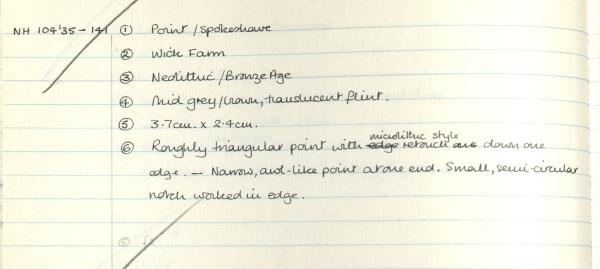 NH 104'35-141 ① Point/spokeshave
② Wick Farm
③ Neolithic/Bronze Age
④ Mid grey/brown, translucent flint.
⑤ 3.7cm. x 2.4cm.
microlithic style
⑥ Roughly triangular point with edge retouch one down one
edge. — Narrow, awl-like point at one end. Small, semi-circular
notch worked in edge.